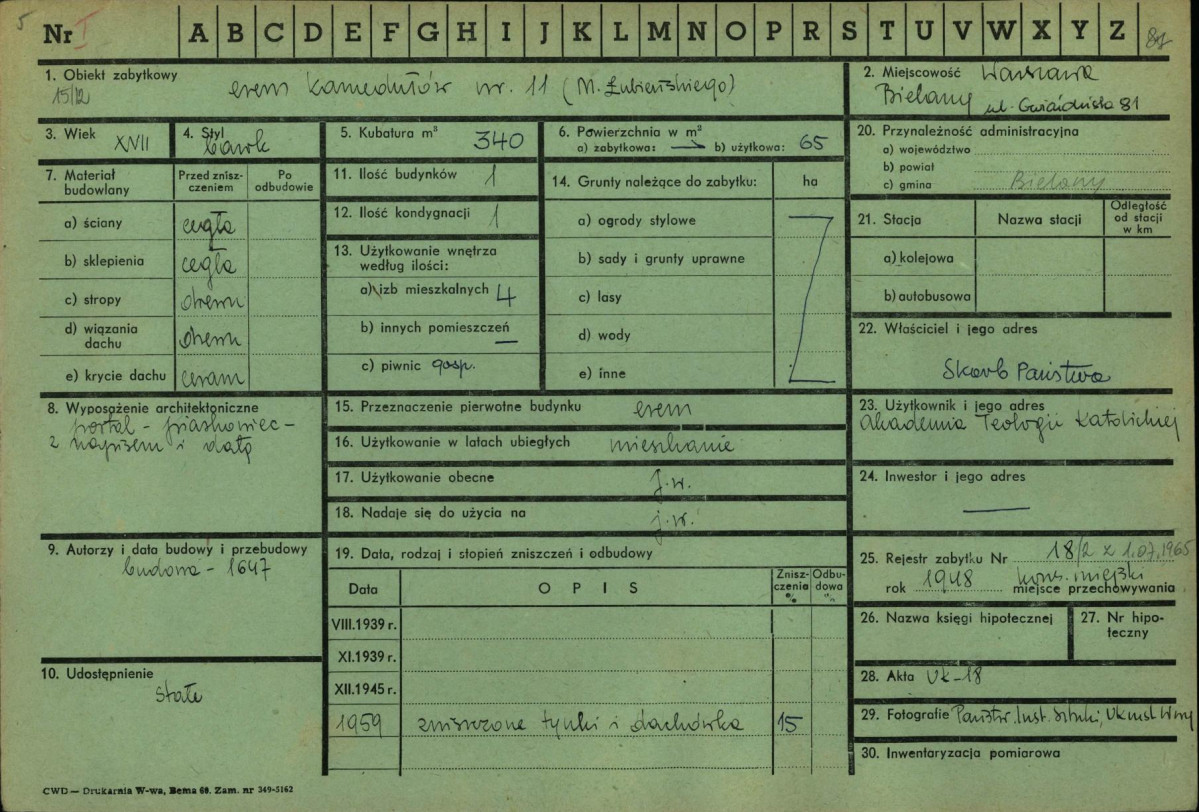 5
Nr I A B C D E F G H I J K L M N O P R S T U V W X Y Z 81
1. Obiekt zabytkowy
15/12
erem Kamedułów nr. 11 (M. Łubieńskiego)
2. Miejscowość Warszawa
Bielany ul. Gwiaździsta 81
3. Wiek XVII
4. Styl barok
5. Kubatura m³ 340
6. Powierzchnia w m²
a) zabytkowa: — b) użytkowa: 65
7. Materiał budowlany
Przed zniszczeniem
Po odbudowie
a) ściany cegła
b) sklepienia cegła
c) stropy drewn
d) wiązania dachu drewn
e) krycie dachu ceram
8. Wyposażenie architektoniczne
portal - piaskowiec -
z napisem i datą
9. Autorzy i data budowy i przebudowy
budowa - 1647
10. Udostępnienie
stałe
11. Ilość budynków 1
12. Ilość kondygnacji 1
13. Użytkowanie wnętrza
według ilości:
a) izb mieszkalnych 4
b) innych pomieszczeń —
c) piwnic gosp.
14. Grunty należące do zabytku: ha
a) ogrody stylowe
b) sady i grunty uprawne
c) lasy
d) wody
e) inne
15. Przeznaczenie pierwotne budynku erem
16. Użytkowanie w latach ubiegłych mieszkanie
17. Użytkowanie obecne j.w.
18. Nadaje się do użycia na j.w.
19. Data, rodzaj i stopień zniszczeń i odbudowy
Data OPIS Zniszczenia % Odbudowa %
VIII.1939 r.
XI.1939 r.
XII.1945 r.
1959 zniszczone tynki i dachówka 15
20. Przynależność administracyjna
a) województwo
b) powiat
c) gmina Bielany
21. Stacja Nazwa stacji Odległość od stacji w km
a) kolejowa
b) autobusowa
22. Właściciel i jego adres
Skarb Państwa
23. Użytkownik i jego adres
Akademia Teologii Katolickiej
24. Inwestor i jego adres
—
25. Rejestr zabytku Nr 18/2 z 1.07.1965
rok 1948 kons. miejski
miejsce przechowywania
26. Nazwa księgi hipotecznej
27. Nr hipoteczny
28. Akta Uk-18
29. Fotografie Państw. Inst. Sztuki, Uk
30. Inwentaryzacja pomiarowa
CWD — Drukarnia W-wa, Bema 60. Zam. nr 349-5162